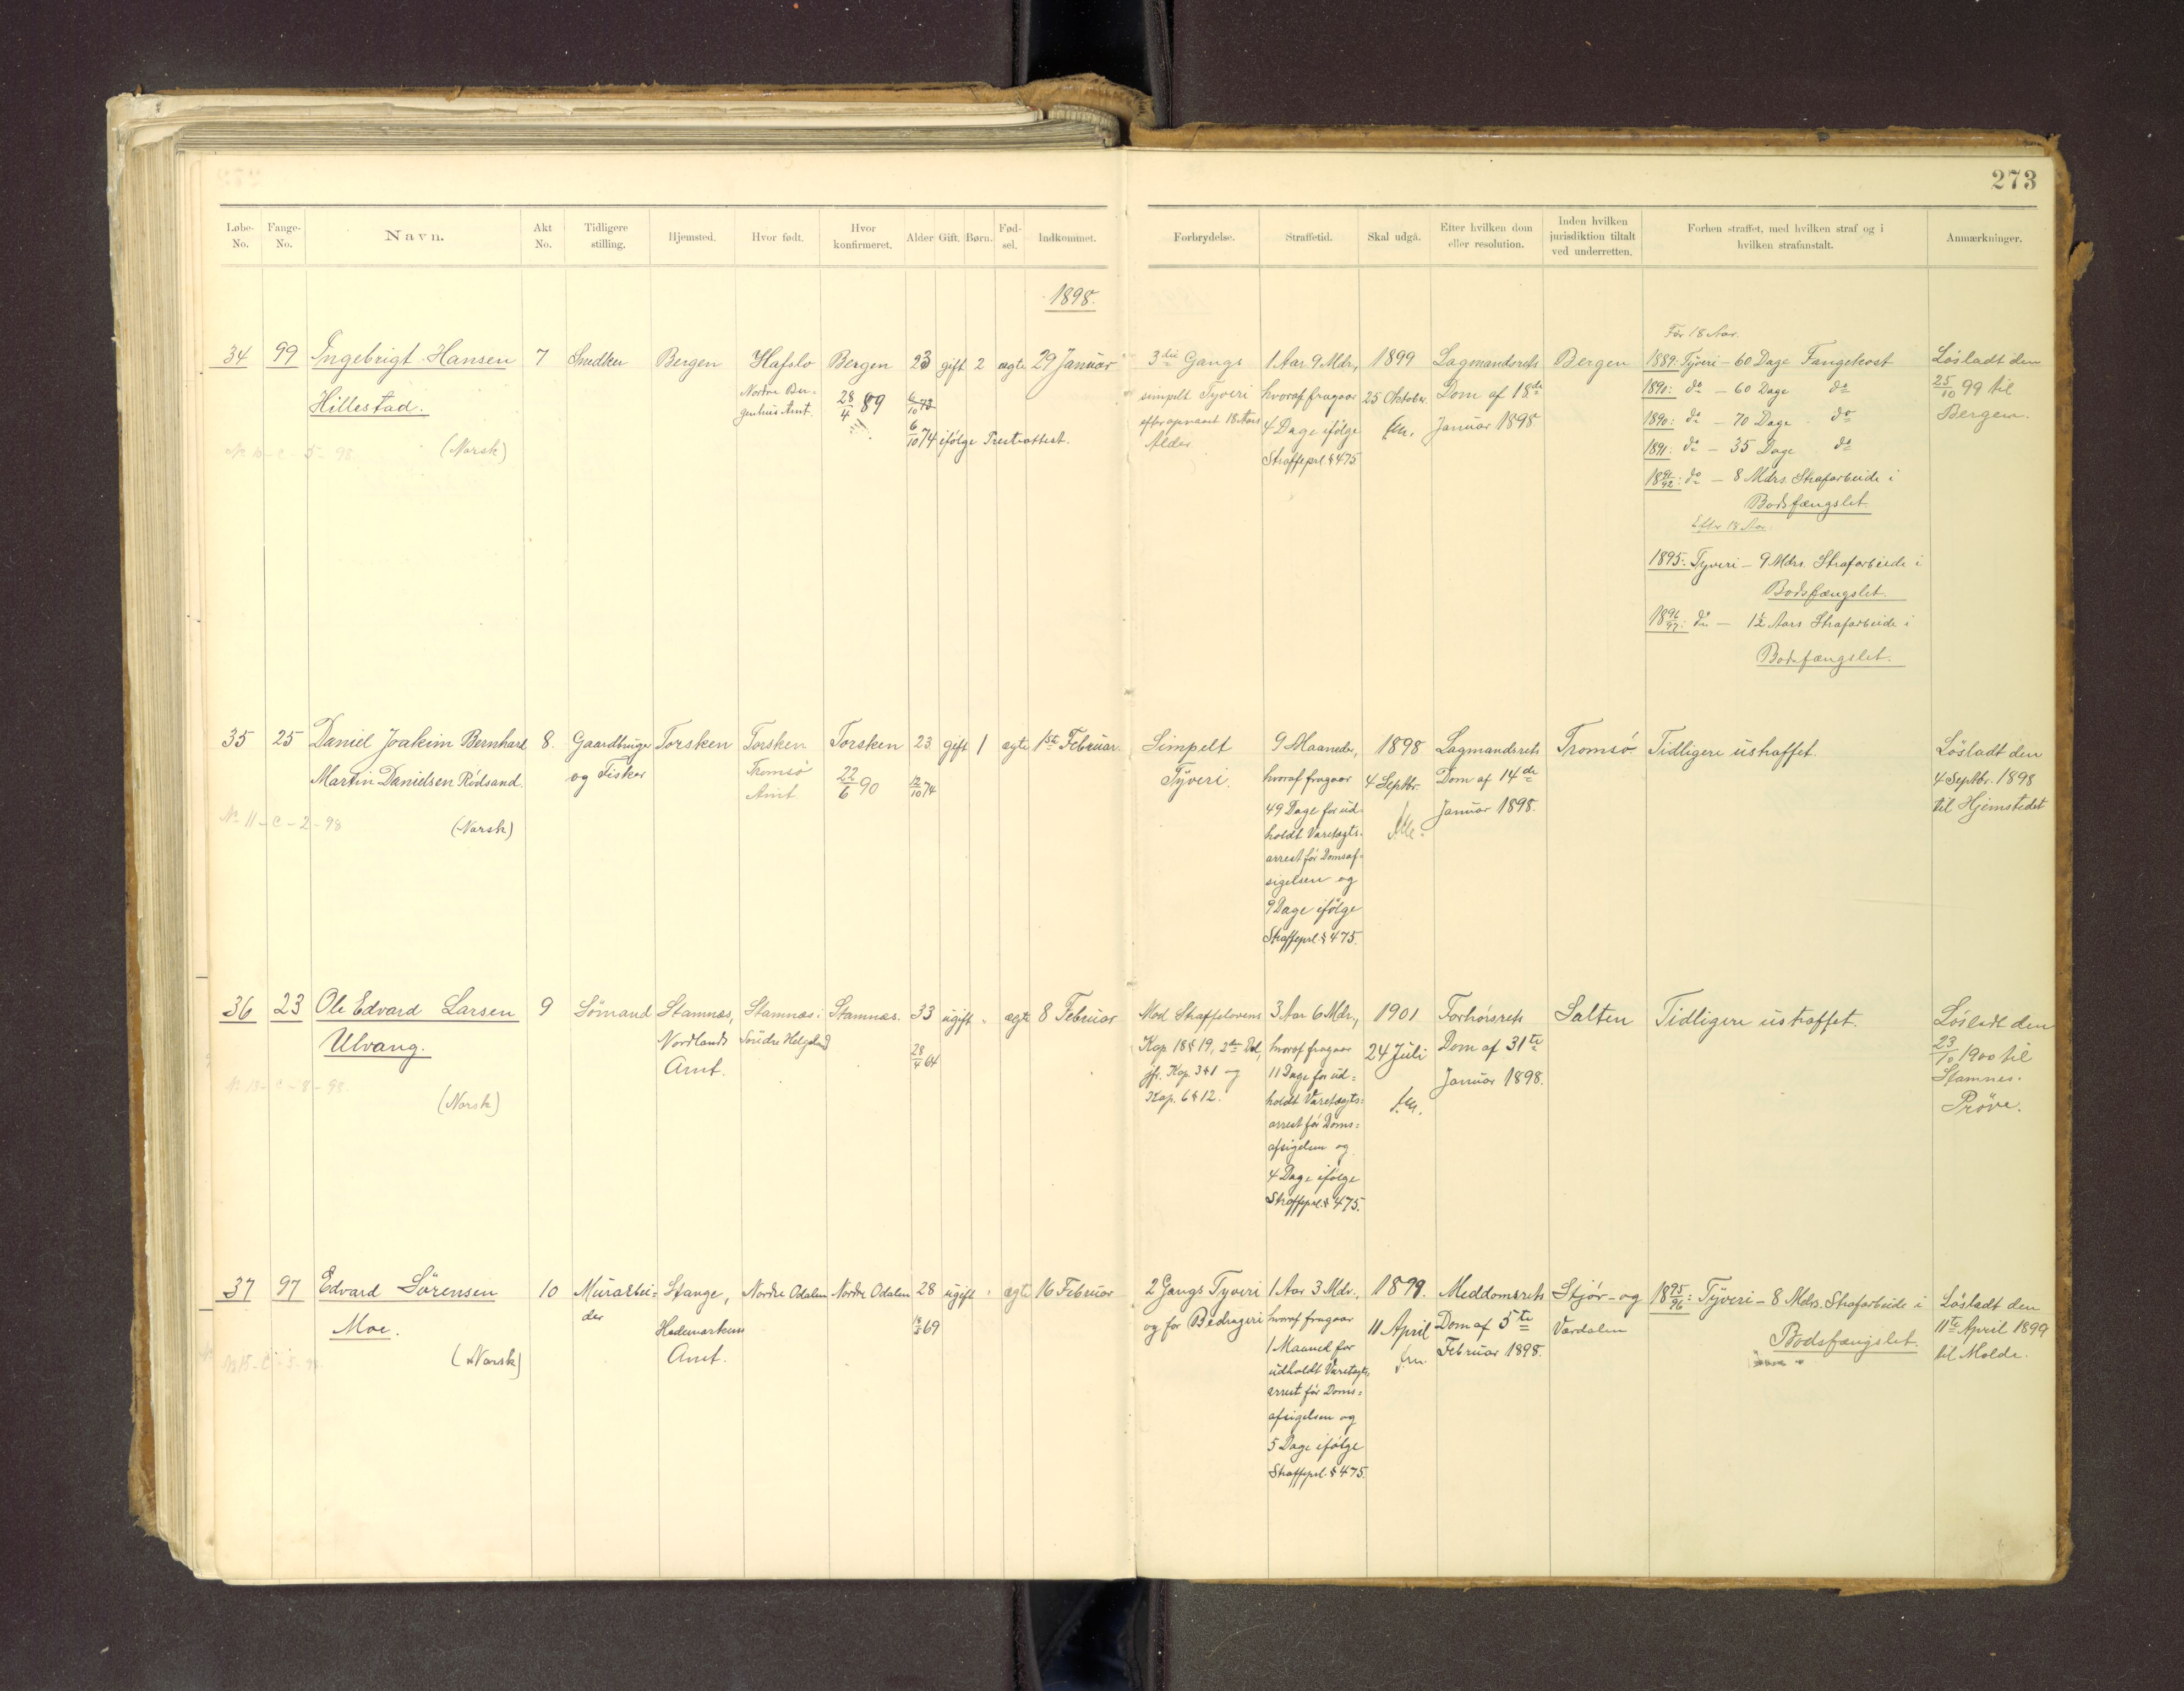 273
Løbe-No. Fange-No. Navn. Akt No. Tidligere stilling. Hjemsted. Hvor født. Hvor konfirmeret. Alder Gift. Børn. Fød-sel. Indkommet.
Forbrydelse. Straffetid. Skal udgå. Efter hvilken dom eller resolution. Inden hvilken jurisdiktion tiltalt ved underretten. Forhen straffet, med hvilken straf og i hvilken strafanstalt. Anmærkninger.
1898.
34 99 Ingebrigt Hansen 7 Snedker Bergen Hafslo Bergen 23 gift 2 ægte 29 Januar
Hillestad. Nordre Ber- 28/4 89 6/10 73
genhus Amt. 6/10 74 ifølge Presteattest.
No 10 - C - 5 - 98 (Norsk)
3die Gangs
simpelt Tyveri
efter opnaaet 18 Aars
Alder
1 Aar 9 Mdr,
hvoraf fragaar
4 Dage ifølge
Straffeprl. § 475
1899
25 Oktober.
fm.
Lagmandsrets
Dom af 18de
Januar 1898
Bergen
Før 18 Aar.
1889: Tyveri - 60 Dage Fangekost
1890: do - 60 Dage do
1890: do - 70 Dage do
1891: do - 35 Dage do
1891/92: do - 8 Mdrs. Strafarbeide i
Bodsfængslet
Efter 18 Aar.
1895: Tyveri - 9 Mdrs. Strafarbeide i
Bodsfængslet.
1896/97: do - 1½ Aars Strafarbeide i
Bodsfængslet.
Løsladt den
25/10 99 til
Bergen.
35 25 Daniel Joakim Bernhard 8. Gaardbruger Torsken Torsken Torsken 23 gift 1 ægte 1ste Februar.
Martin Danielsen Rödsand. og Fisker Tromsø 22/6 90 12/10 74
Amt.
No 11 - C - 2 - 98 (Norsk)
Simpelt
Tyveri.
9 Maaneder,
hvoraf fragaar
49 Dage for ud-
holdt Varetægts-
arrest før Domsaf-
sigelsen og
9 Dage ifølge
Straffeprl. § 475.
1898
4 Septbr.
Lagmandsrets
Dom af 14de
Januar 1898.
Tromsø
Tidligere ustraffet.
Løsladt den
4 Septbr. 1898
til Hjemstedet
36 23 Ole Edvard Larsen 9 Sømand Stamnæs, Stamnæs i Stamnæs. 33 ugift " ægte 8 Februar
Ulvang. Nordlands Søndre Helgeland 28/4 64
Amt.
No 13 - C - 8 - 98. (Norsk)
Mod Straffelovens
Kap. 18 § 19, 2det Led,
jfr. Kap. 3 § 1 og
Kap. 6 § 12.
3 Aar 6 Mdr,
hvoraf fragaar
11 Dage for ud-
holdt Varetægts-
arrest før Doms-
afsigelsen og
4 Dage ifølge
Straffeprl. § 475.
1901
24 Juli
fm.
Forhørsrets
Dom af 31te
Januar 1898.
Salten
Tidligere ustraffet.
Løsladt den
23/10 1900 til
Stamnes.
Prøve.
37 97 Edvard Sörensen 10 Murarbei- Stange, Nordre Odalen Nordre Odalen 28 ugift " ægte 16 Februar
Moe. der Hedemarkens 69
Amt.
No 15 - C - 5 - 98. (Norsk)
2 Gangs Tyveri
og for Bedrageri
1 Aar 3 Mdr.,
hvoraf fragaar
1 Maaned for
udholdt Varetægts-
arrest før Doms-
afsigelsen og
5 Dage ifølge
Straffeprl. § 475.
1899.
11 April
fm.
Meddomsrets
Dom af 5te
Februar 1898.
Stjør- og
Værdalen
1895/96: Tyveri - 8 Mdrs. Strafarbeide i
Bodsfængslet.
Løsladt den
11te April 1899
til Molde.